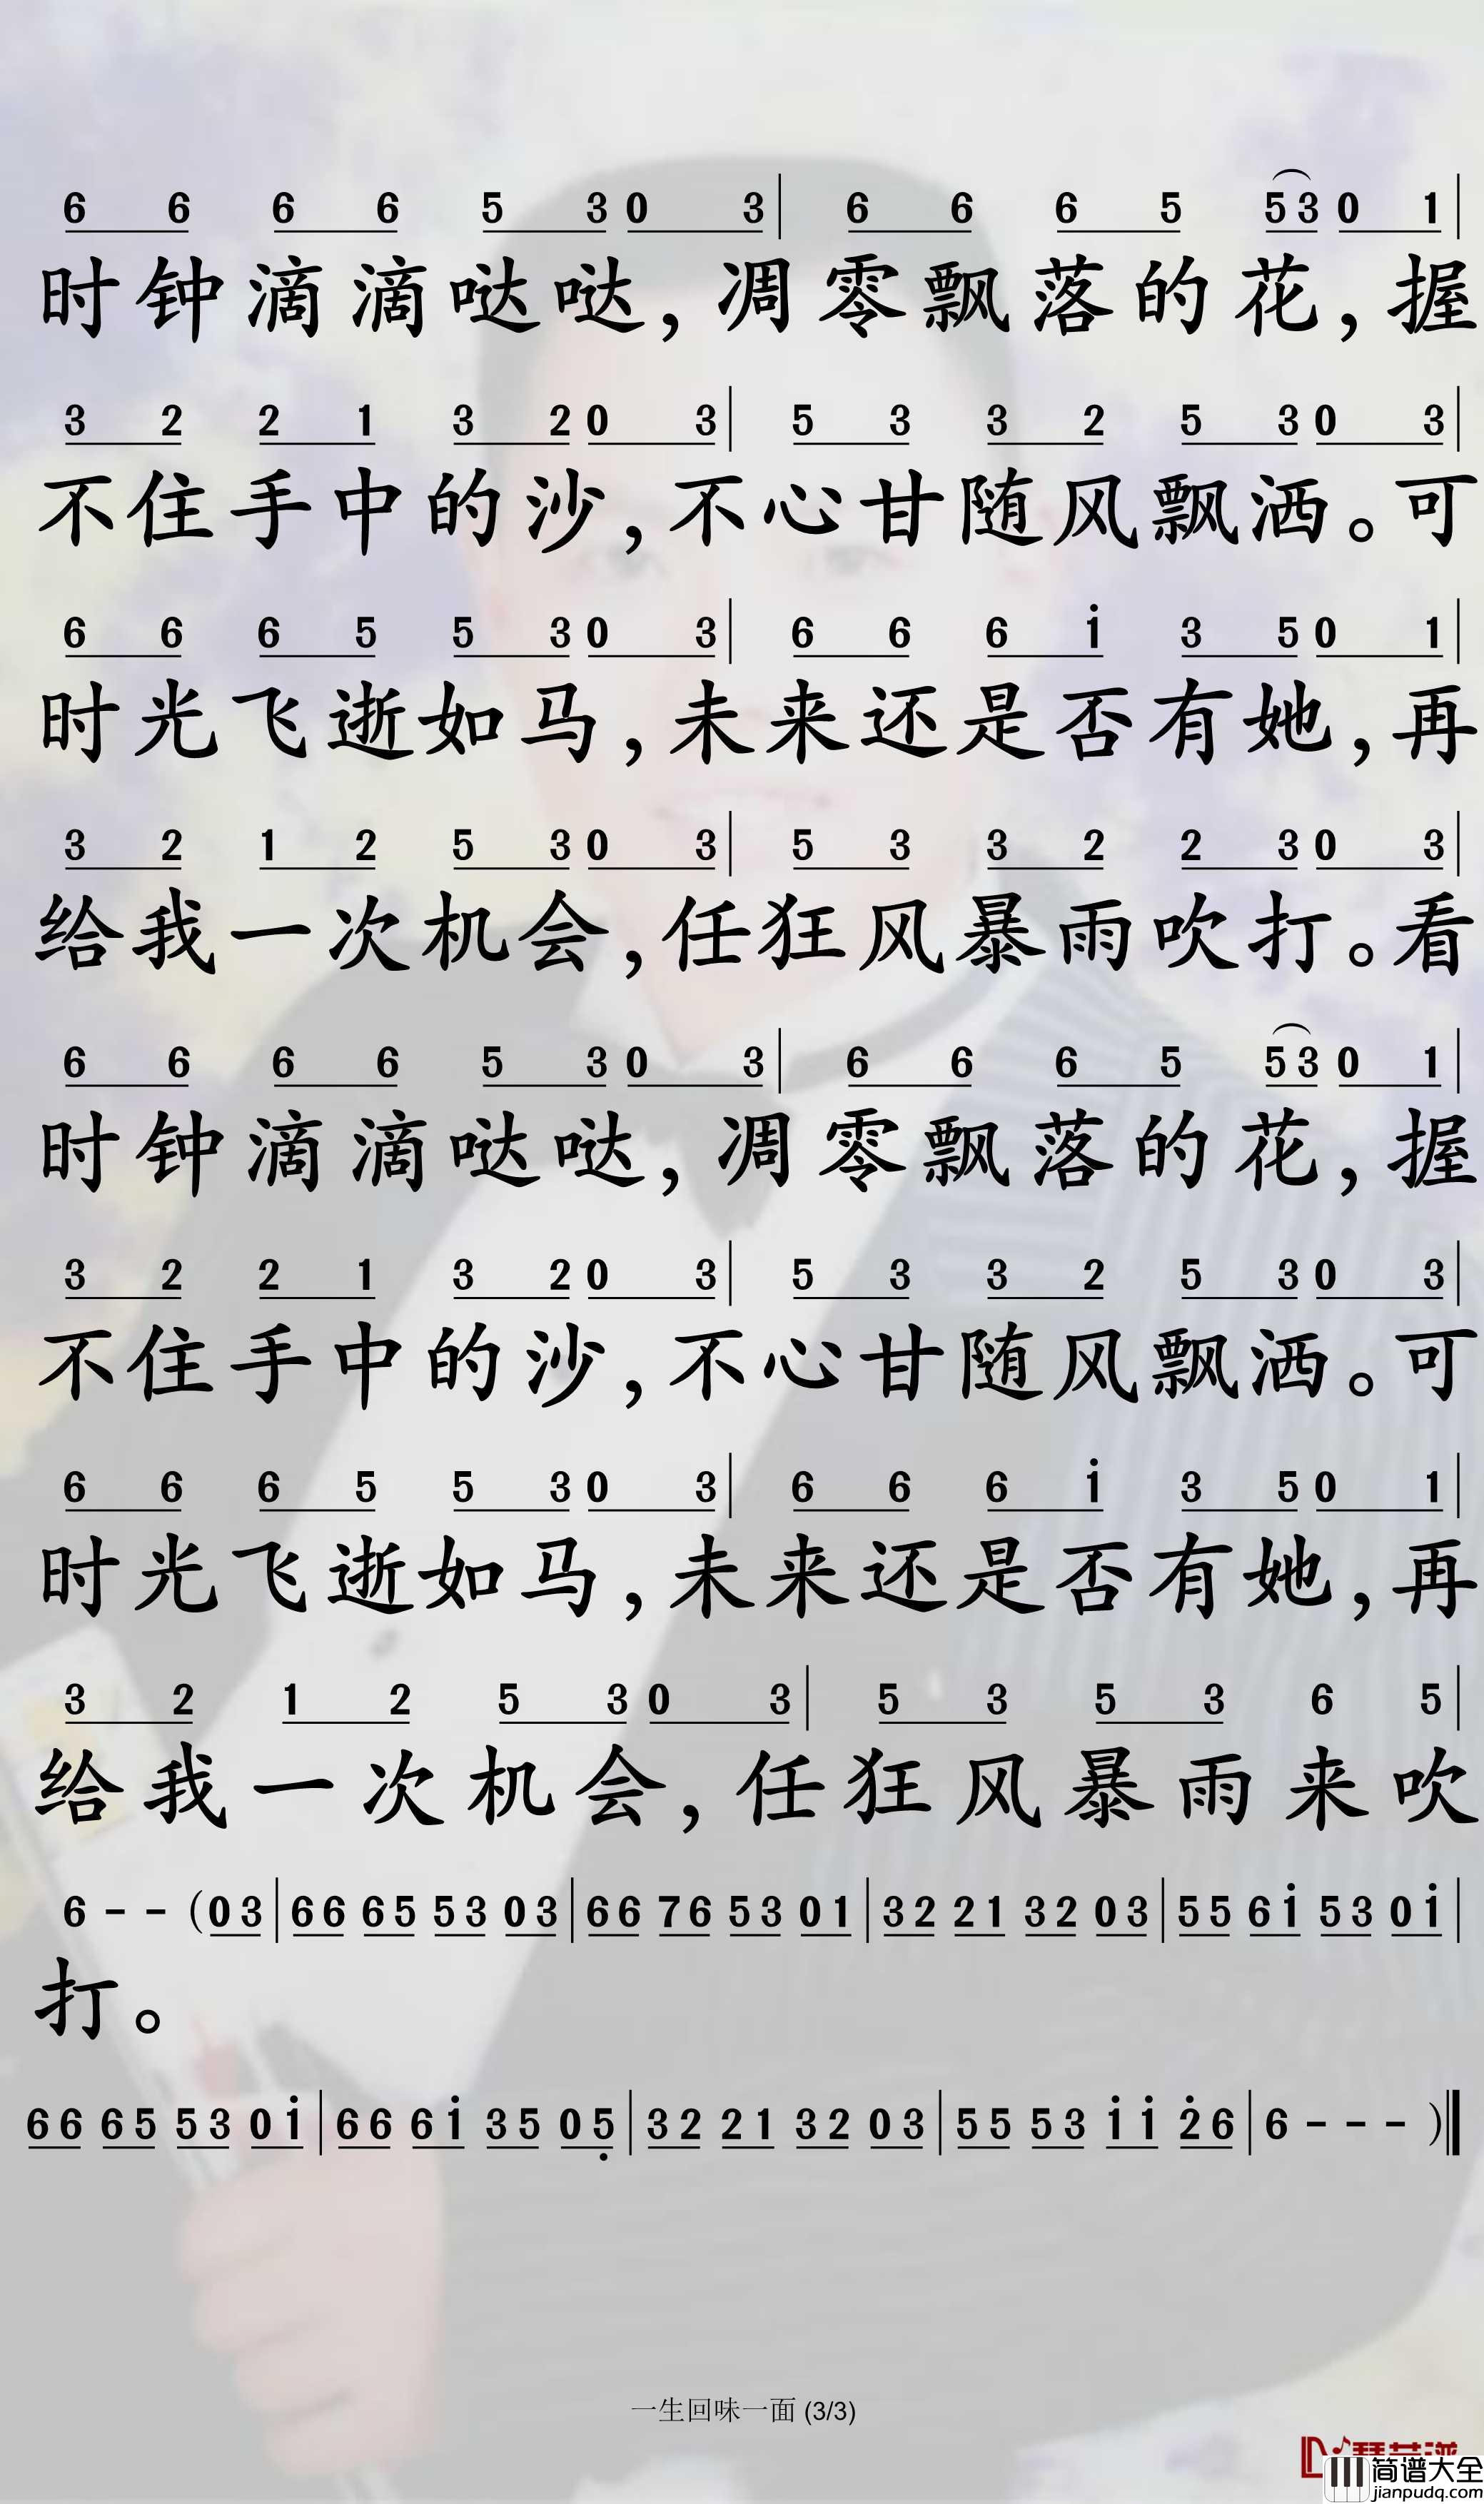 6 6 6 6 5 3 0 3 | 6 6 6 5 5 3 0 1 |
时钟滴滴哒哒，凋零飘落的花，握
3 2 2 1 3 2 0 3 | 5 3 3 2 5 3 0 3 |
不住手中的沙，不心甘随风飘洒。可
6 6 6 5 5 3 0 3 | 6 6 6 i 3 5 0 1 |
时光飞逝如马，未来还是否有她，再
3 2 1 2 5 3 0 3 | 5 3 3 2 2 3 0 3 |
给我一次机会，任狂风暴雨吹打。看
6 6 6 6 5 3 0 3 | 6 6 6 5 5 3 0 1 |
时钟滴滴哒哒，凋零飘落的花，握
3 2 2 1 3 2 0 3 | 5 3 3 2 5 3 0 3 |
不住手中的沙，不心甘随风飘洒。可
6 6 6 5 5 3 0 3 | 6 6 6 i 3 5 0 1 |
时光飞逝如马，未来还是否有她，再
3 2 1 2 5 3 0 3 | 5 3 5 3 6 5 |
给我一次机会，任狂风暴雨来吹
6 - - (0 3 | 6 6 6 5 5 3 0 3 | 6 6 7 6 5 3 0 1 | 3 2 2 1 3 2 0 3 | 5 5 6 i 5 3 0 i |
打。
6 6 6 5 5 3 0 i | 6 6 6 i 3 5 0 5̣ | 3 2 2 1 3 2 0 3 | 5 5 5 3 i i 2̇ 6 | 6 - - - ) ‖
一生回味一面 (3/3)
简谱大全
jianpudq.com